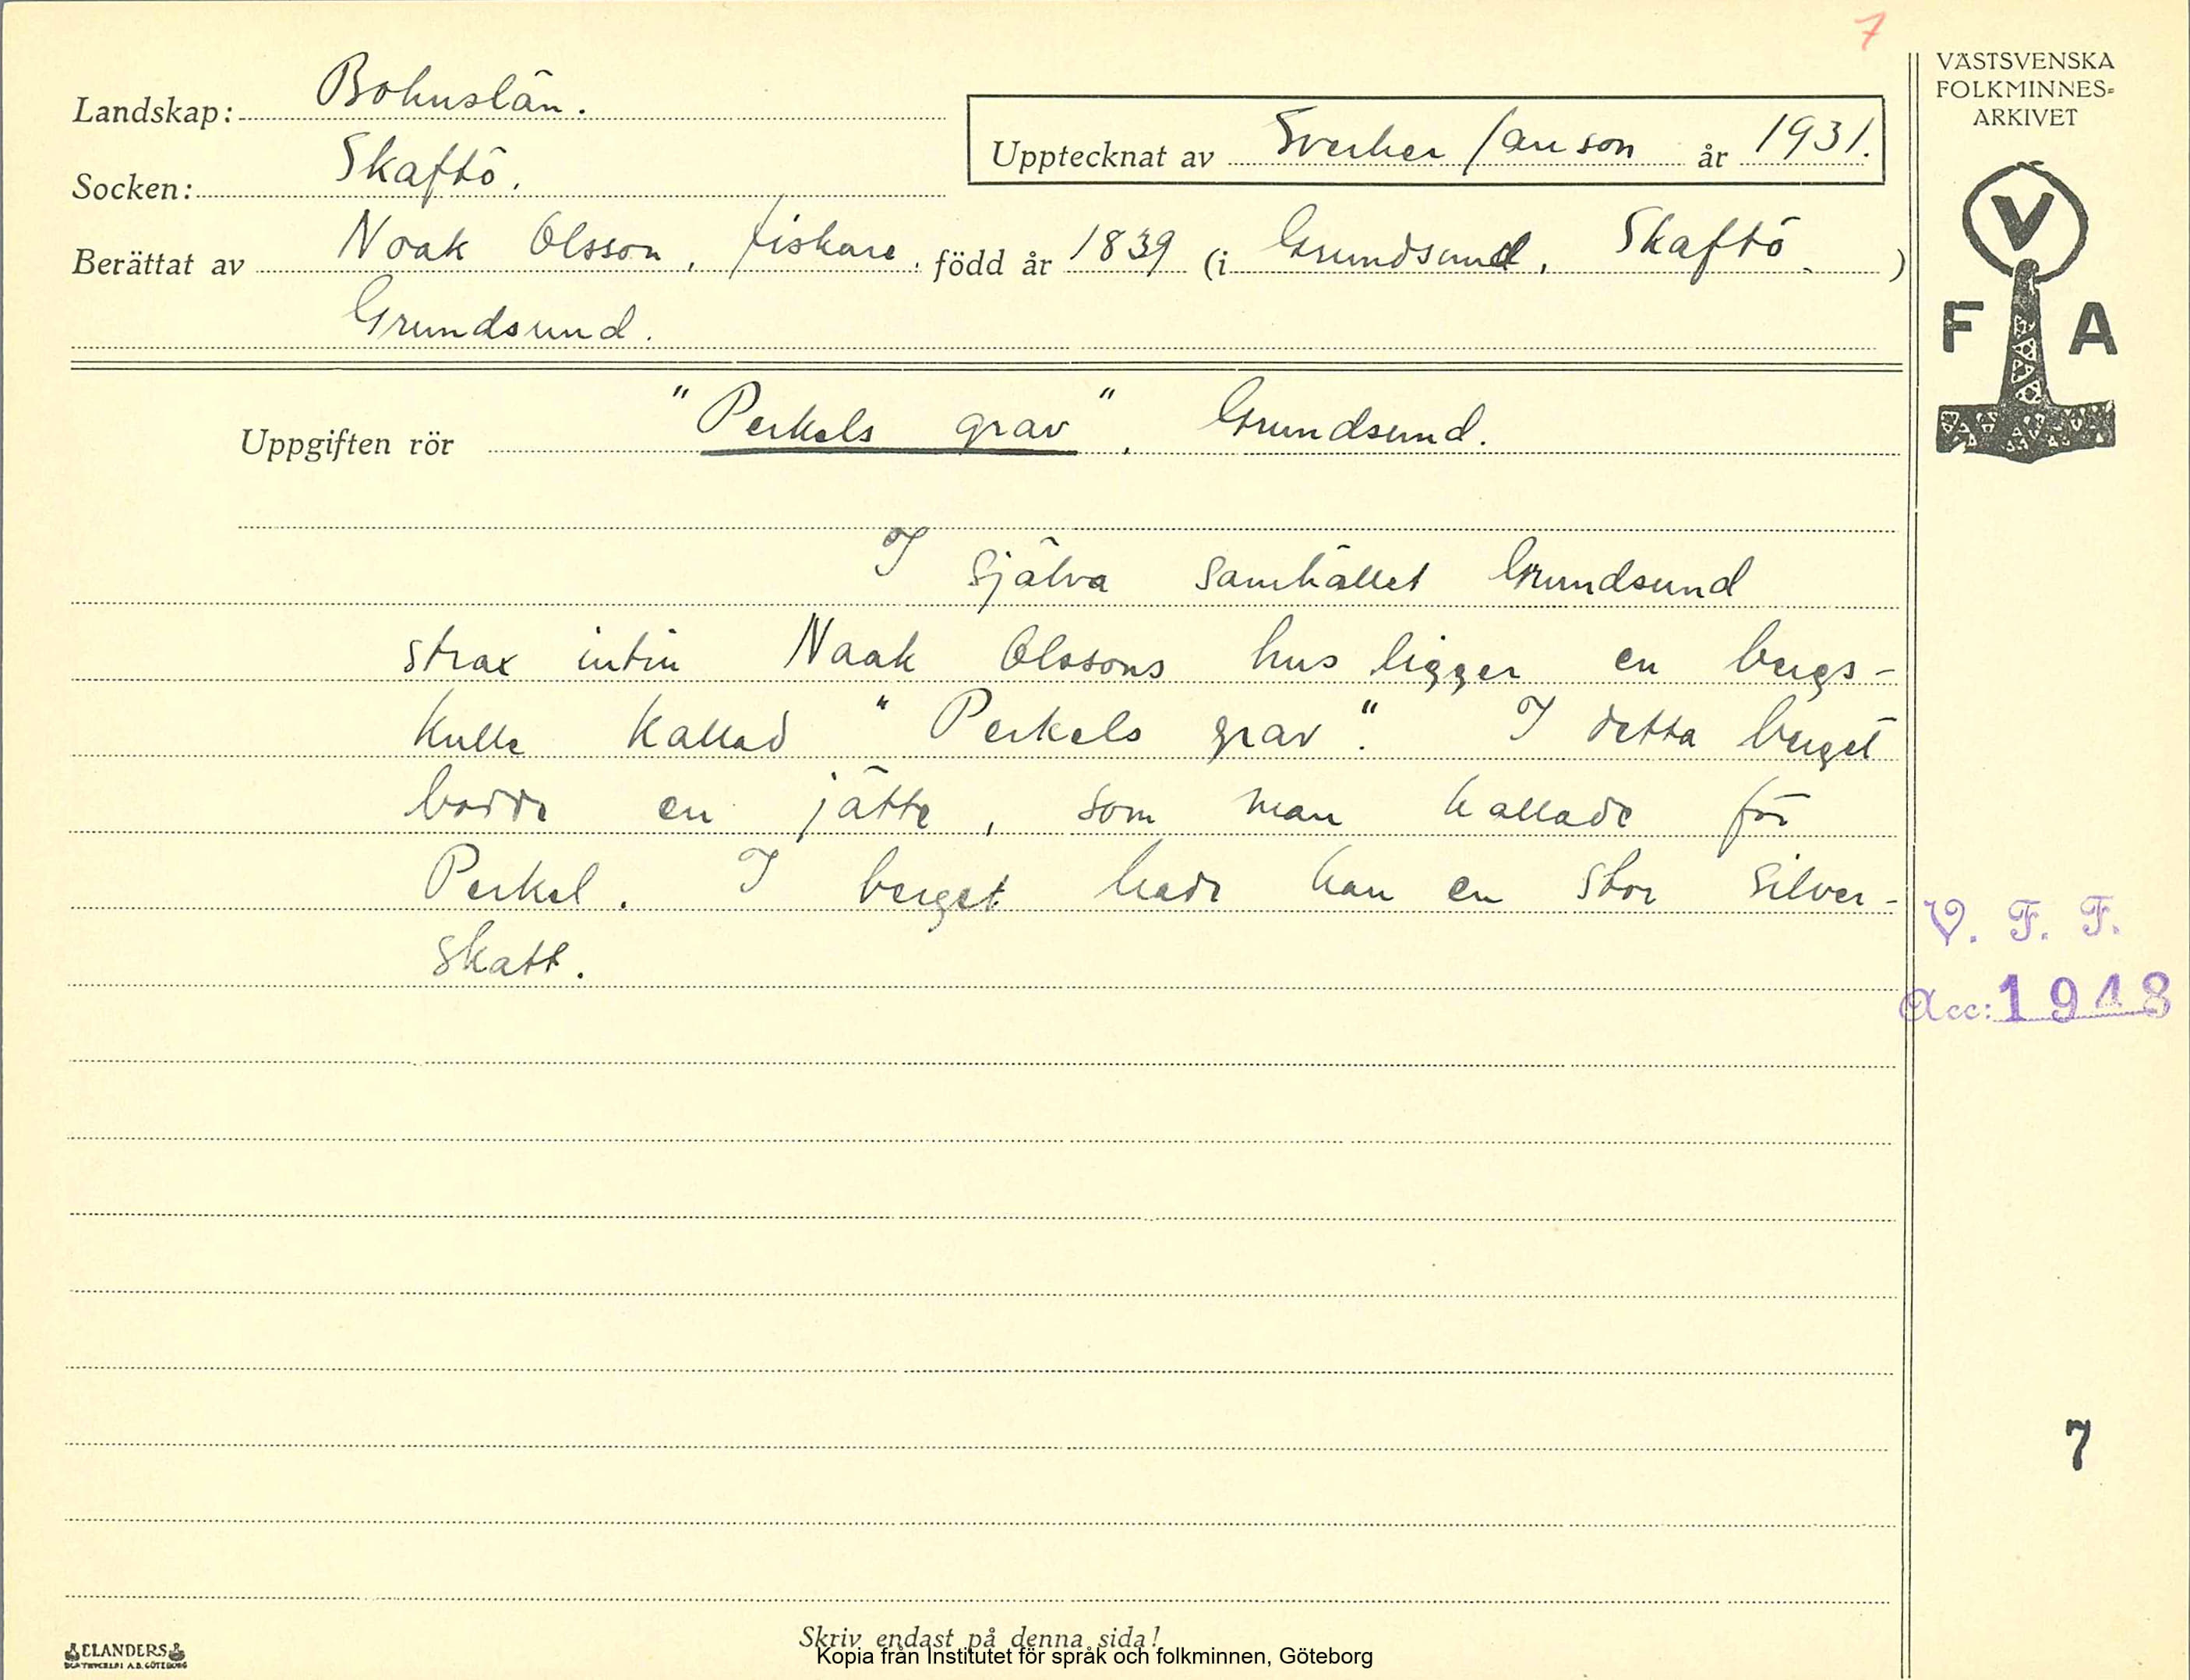 7
VÄSTSVENSKA
FOLKMINNES=
ARKIVET
Landskap: Bohuslän.
Upptecknat av Sverker Janson år 1931.
Socken: Skaftö.
Berättat av Noak Olsson, fiskare, född år 1839 (i Grundsund, Skaftö.)
Grundsund.
V
F A
Uppgiften rör "Perkels grav", Grundsund.
I själva samhället Grundsund
strax intin Noak Olssons hus ligger en bergs-
kulle kallad "Perkels grav". I detta berget
bodde en jätte, som man kallade för
Perkel. I berget hade han en stor silver-
skatt.
V. F. F.
Acc: 1948
7
Skriv endast på denna sida!
Kopia från Institutet för språk och folkminnen, Göteborg
ELANDERS
BOKTRYCKERI A.B. GÖTEBORG